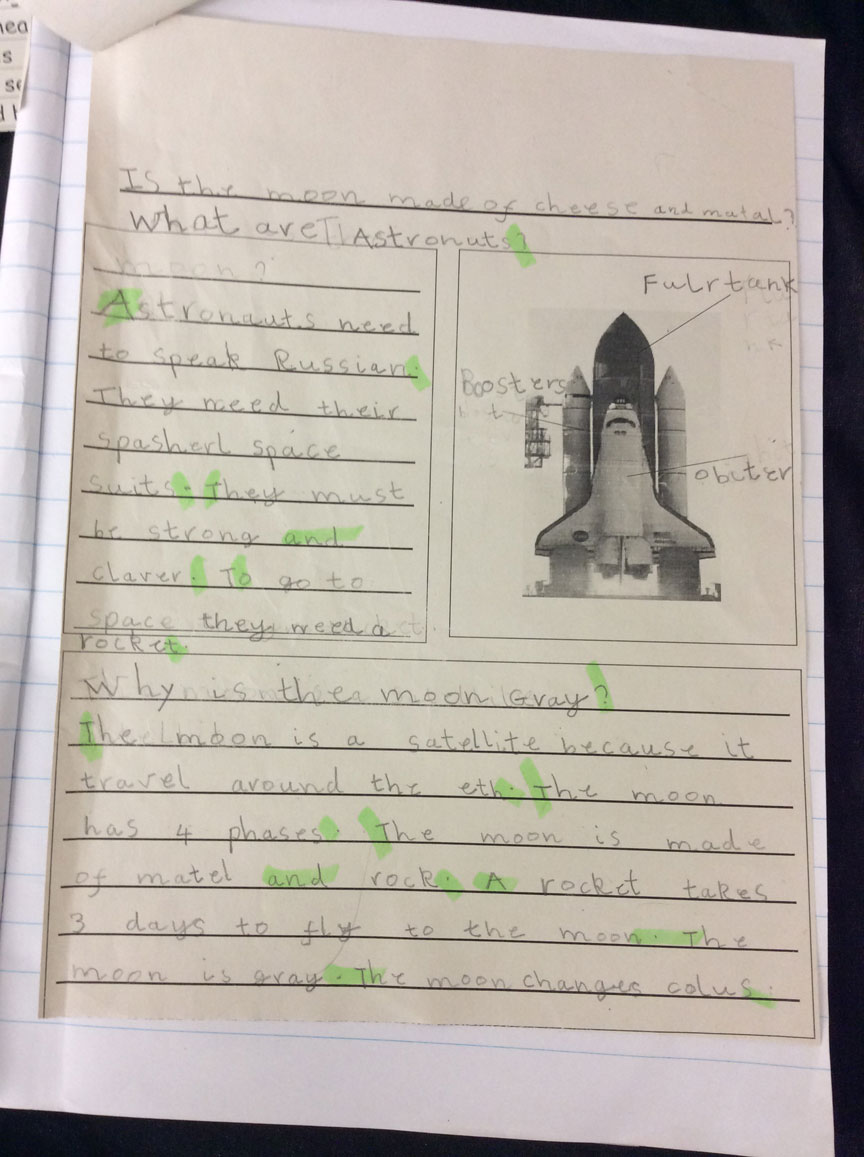 Is the moon made of cheese and matal?
What are Astronuts?
moon?
Astronauts need
to speak Russian.
They need their
spasherl space
suits. They must
be strong and
claver. To go to
space they need a
rocket.
Fulrtank
Boosters
obiter
Why is the moon Gray?
The moon is a satellite because it
travel around the eth. The moon
has 4 phases. The moon is made
of matel and rock. A rocket takes
3 days to fly to the moon. The
moon is gray. The moon changes colus.